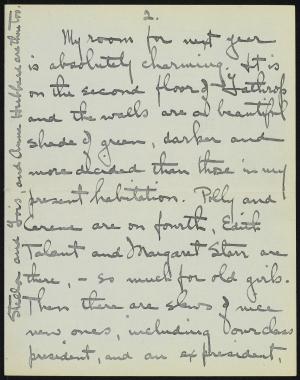 2.
My room for next year
is absolutely charming. It is
on the second floor of Lathrop
and the walls are a beautiful
shade of green, darker and
more decided than those in my
present habitation. Polly and
are on fourth, Edith
Talant and Margaret Starr are
there, - so much for old girls.
Then there are slews of nice
new ones, including our class
president, and an ex president,
and Lois, and Anne Hubbard are thru too.